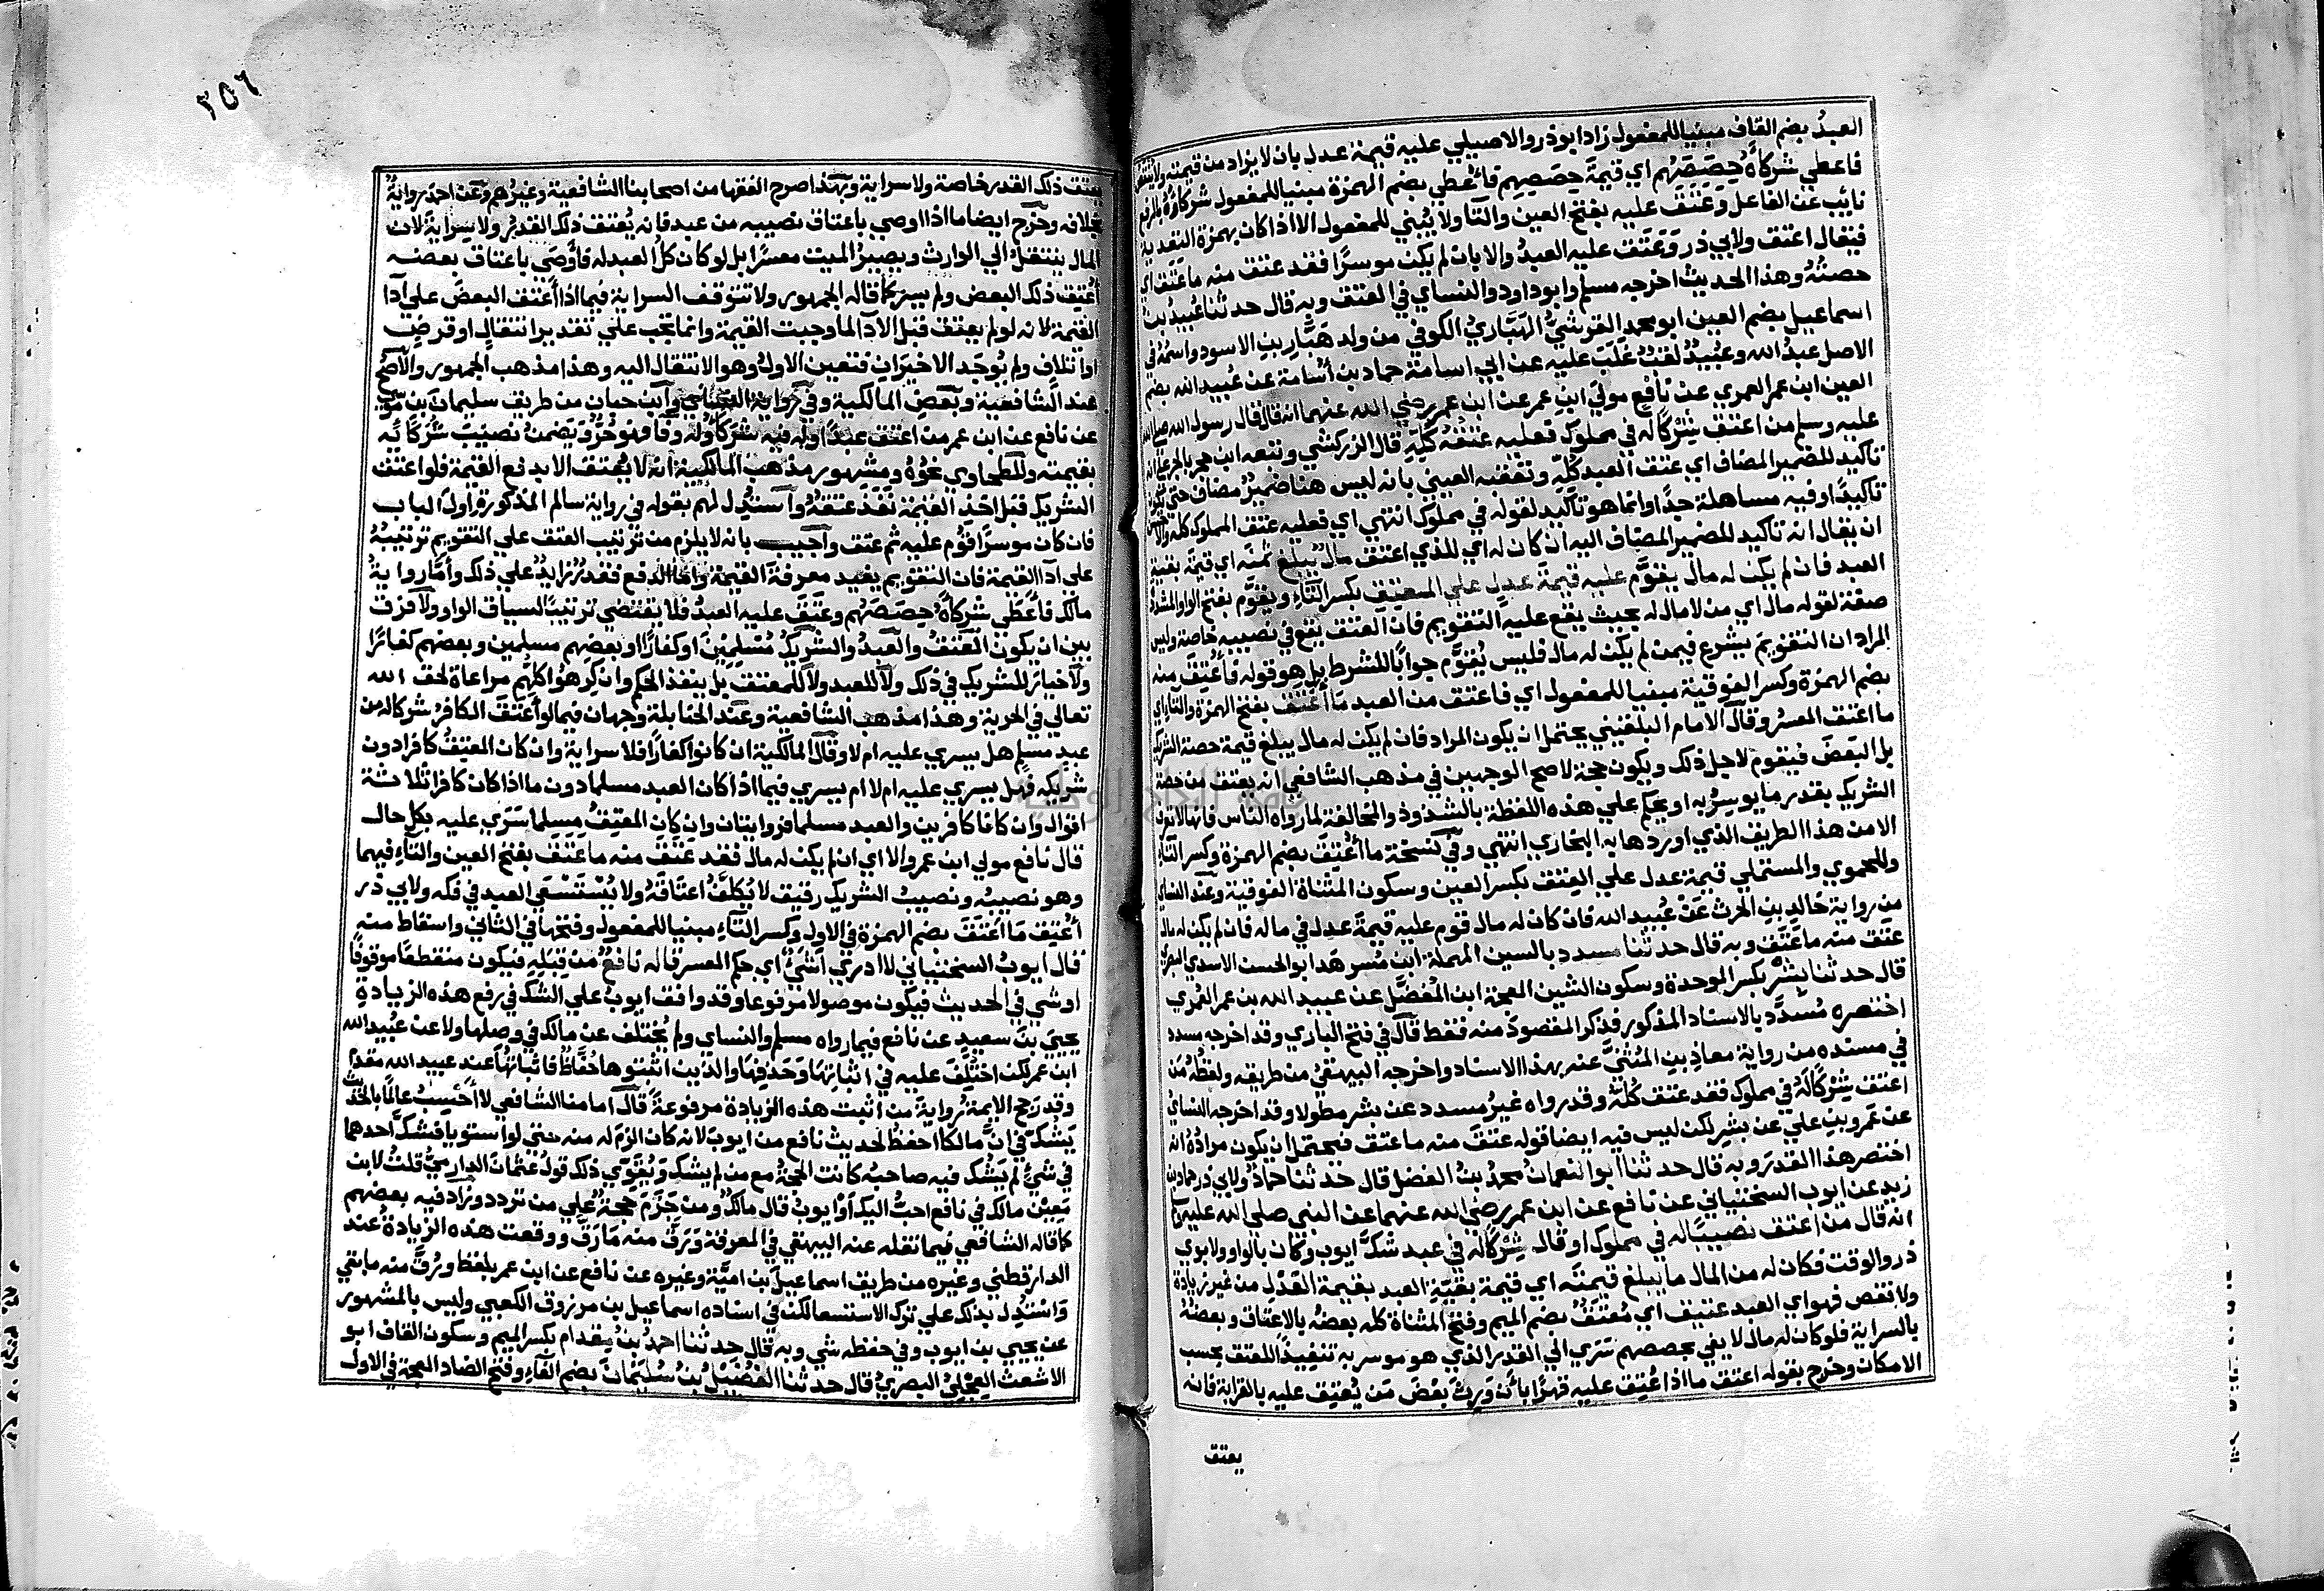 العبدُ بضم القاف مبنيا للمفعول زاد ابوذر والاصيلي عليه قيمة عدل بان لا يزاد من قيمته ولا ينقص
فاعطي شركاهُ حِصَصَهُم اي قيمة حِصَصِهم فاعطي بضم الهمزة مبنيا للمفعول شركاؤهُ بالرفع
نائب عن الفاعل وعَتَقَ عليه بفتح العين والتا ولا يُبني للمفعول الا اذا كان بهمزة التعدية
فيقال اعتق ولابي ذر وعَتَقَ عليه العبدُ والا بان لم يكن موسرًا فقد عتق منه ما عَتَقَ اي
حصتُهُ وهذا الحديث اخرجه مسلم وابو داود والنساي في العتق وبه قال حدثنا عُبيدُ بن
اسماعيل بضم العين ابو محمد القرشيُّ الهَبَّاريُ الكوفي من ولد هَبَّارِ بن الاسود واسمُهُ في
الاصل عبدُ الله وعُبَيدٌ لقبٌ غَلَبَ عليه عن ابي اسامة حماد بن أسامة عن عُبيد الله بضم
العين ابن عمر العمري عن نافع مولي ابن عمر عن ابن عمر رضي الله عنهما انه قال قال رسول الله صلي الله
عليه وسلم من اعتق شِرْكًا له في مملوك فعليه عتقُهُ كُلِّهِ قال الزركشي وتبعه ابن حجر بالجر علي انه
تاكيد للضمير المضاف اي عتق العبد كُلِّه وتعقبه العيني بانه ليس هنا ضميرٌ مضاف حتي يكون
تاكيدًا وفيه مساهلة جدًا وانما هو تاكيد لقوله في مملوك انتهي اي فعليه عتق المملوك كله والاحسن
ان يقال انه تاكيد للضمير المضاف اليه ان كان له اي للذي اعتق مالٌ يبلغ ثمنَه اي قيمة بقية
العبد فان لم يكن له مال يقوَّم عليه قيمةَ عدل علي المعتِق بكسر التاءِ ويقوَّم بفتح الواو المشددة
صفة لقوله مال اي من لا مال له بحيث يقع عليه التقويم فان العتق يقع في نصيبه خاصة وليس
المراد ان التقويم يشرع فيمن لم يكن له مال فليس يُقوَّم جوابًا للشرط بل هو قوله فأُعْتِقَ منه
بضم الهمزة وكسر الفوقية مبنيا للمفعول اي فاعتق من العبد ما أَعْتَقَ بفتح الهمزة والتاءِ اي
ما اعتق المعسر وقال الامام البلقيني يحتمل ان يكون المراد فان لم يكن له مال يبلغ قيمة حصة الشريك
بل البعضَ فيقوم لاجل ذلك ويكون حجة لاصح الوجهين في مذهب الشافعي انه يعتق من حصة
الشريك بقدر ما يوسِرُ به او يحكم علي هذه اللفظة بالشذوذ والمخالفة لما رواه الناس فانها لا تعرف
الا من هذا الطريق الذي اوردها به البخاري انتهي وفي نسخة ما أُعْتِقَ بضم الهمزة وكسر التاءِ
وللحموي والمستملي قيمة عدل علي العِتق بكسر العين وسكون المثناة الفوقية وعند النساي
من رواية خالد بن الحرث عن عُبيد الله فان كان له مال قوم عليه قيمةَ عدل في ماله فان لم يكن له مال
عتق منه ما عَتَقَ وبه قال حدثنا مسدد بالسين المهملة ابن مُسرهَد ابو الحسن الاسدي البصري
قال حدثنا بِشْرٌ بكسر الموحدة وسكون الشين المعجمة ابن المُفَضَّل عن عبيد الله بن عمر العُمري
اختصره مُسدَّد بالاسناد المذكور فذكر المقصودَ منه فقط قال في فتح الباري وقد اخرجه مسدد
في مسنده من رواية معاذ بن المُثنيَّ عنه بهذا الاسناد واخرجه البيهقيُ من طريقه ولفظُهُ مَن
اعتق شِرْكًا لَهُ في مملوك فقد عتق كُلُّهُ وقد رواه غيرُ مسدد عن بشر مطولا وقد اخرجه النسائي
عن عَمرو بن علي عن بشر لكن ليس فيه ايضا قوله عتق منه ما عتق فيحتمل ان يكون مرادُهُ انه
اختصر هذا القدرَ وبه قال حدثنا ابو النعمان محمدُ بنُ الفضل قال حدثنا حمادٌ ولابي ذر حماد بن
زيد عن ايوب السختياني عن نافع عن ابن عمر رضي الله عنهما عن النبي صلي الله عليه وسلم
انه قال من اعتق نصيبًا له في مملوك او قال شِرْكًا له في عبد شكَّ ايوب وكان بالواو ولابوي
ذر والوقت فكان له من المال ما يبلغ قيمتَه اي قيمة بقيَّةِ العبد بقيمة العَدْل من غير زيادة
ولا نقص فهو اي العبد عتيق اي مُعتَقٌ بضم الميم وفتح المثناة كله بعضهُ بالاعتاق وبعضهُ
بالسراية فلو كان له مال لا يفي بحصصهم سَرَي الي القدر الذي هو موسر به تنفيذًا للعتق بحسب
الامكان وخرج بقوله اعتق ما اذا عُتِق عليه قهرًا بأن وَرِثَ بَعْضَ مَن يُعتِق عليه بالقرابة فانه
يعتق
٢٥٦
يعتق ذلك القدر خاصة ولا سراية وبهذا صرح الفقها من اصحابنا الشافعية وغيرُهم وعن احمد روايةٌ
بخلافه وخرج ايضا ما اذا اوصي باعتاق نصيبه من عبد فانه يُعتق ذلك القدرُ ولا سِرايةَ لان
المال ينتقلُ الي الوارث ويصيرُ الميت معسرًا بل لو كان كلُ العبد له فأوصَي باعتاق بعضه
أُعتِق ذلك البعض ولم يسر كما قاله الجمهور ولا تتوقف السراية فيما اذا أَعْتق البعضَ علي اَدا
القيمة لانه لو لم يعتق قبل الادآ لما وجبت القيمة وانما تجب علي تقدير انتقال او قرض
او اتلاف ولم يُوجَد الاخيران فتعين الاولُ وهو الانتقال اليه وهذا مذهب الجمهور والاصح
عند الشافعية وبعضِ المالكية وفي رواية النسائي وابن حبان من طريق سليمان بن موسي
عن نافع عن ابن عمر من اعتق عبدًا وله فيه شركآُ وله وفا فهو حُرٌّ ويضمن نصيبَ شُركائه
بقيمته وللطحاوي نحوُهُ ومشهور مذهب المالكية انه لا يُعتق الا بدفع القيمة فلو اعتق
الشريك قبل اخذ القيمة نَفَذ عتقُهُ واستُدِل لهم بقوله في رواية سالم المذكورة اولَ الباب
فان كان موسرًا قُوِّم عليه ثم عتق واُجيب بانه لا يلزم من ترتيب العتق علي التقويم ترتيبُهُ
علي اَدآ القيمة فان التقويم يفيد معرفةَ القيمة واما الدفع فقدرٌ زايدٌ علي ذلك وأَمَّا رواية
مالك فاعطَي شركاهُ حِصَصَهُم وعَتَقَ عليه العبدُ فلا يقتضي ترتيبًا لسياق الواو ولا فرق
بين ان يكون المعتقُ والعبدُ والشريكُ مُسْلِمِينَ او كفارًا او بعضهم مسلمين وبعضهم كفارًا
ولا خيار للشريك في ذلك ولا للعبد ولا للمعتق بل ينفذ الحكم وان كرهوا كلُّهُم مراعاة لحق الله
تعالي في الحرية وهذا مذهب الشافعية وعند الحنابلة وجهان فيما لو أَعْتَقَ الكافرُ شركا له من
عبد مسلم هل يسري عليه ام لا وقال المالكية ان كانوا كفارًا فلا سراية وان كان المعتِقُ كافرا دون
شريكه فهل يسري عليه ام لا ام يسري فيما اذا كان العبد مسلما دون ما اذا كان كافرا ثلاثة
اقوال وان كانا كافرين والعبد مسلما فروايتان وان كان المعتِقُ مسلما سَرَي عليه بكل حال
قال نافع مولي ابن عمر والا اي ان لم يكن له مال فقد عتق منه ما عَتَقَ بفتح العين والتآءِ فيهما
وهو نصيبُه ونصيبُ الشريك رقيق لا يُكلَّفُ اعتاقَهُ ولا يُسْتَسْعَي العبد في فكه ولابي ذر
أُعْتِقَ ما أَعْتَقَ بضم الهمزة في الاول وكسر التآءِ مبنيا للمفعول وفتحها في الثاني واسقاط منه
قال ايوبُ السختياني لا ادري أشيْئٌ اي حكم المعسر قاله نافعٌ من قِبَلِهِ فيكون منقطعًا موقوفًا
او شي في الحديث فيكون موصولا مرفوعا وقد وافق ايوبَ علي الشك في رفع هذه الزيادةِ
يحييَ بن سعيدٍ عن نافع فيما رواه مسلم والنساي ولم يُختلف عن مالك في وصلها ولا عن عُبَيد الله
ابن عمر لكن اختُلِفَ عليه في اثباتِها وحَذْفِها والذين اثبتوها حُفَّاظٌ فاثباتُها عند عبيد الله مقدمٌ
وقد رجح الايمةُ روايةَ من اثبت هذه الزيادة مرفوعةً قال امامنا الشافعي لا أَحْسَبُ عالِمًا بالحديث
يَشُكُّ في انَّ مالكا احفظُ لحديث نافع من ايوبَ لانه كان الزمَ له منه حتي لو استويا فشكَّ احدهما
في شيْئٍ لم يَشُكَّ فيه صاحبُه كانت الحجةُ مع من لم يشك ويُقَوِّي ذلك قولُ عثمانَ الدارميِّ قلتُ لابن
مَعِيْن مالك في نافع احبُّ اليك أو ايوبُ قال مالكٌ ومَنْ جَزَمَ حجةٌ علي من تردد وزاد فيه بعضهم
كما قاله الشافعي فيما نقله عنه البيهقي في المعرفة وَرَقَّ منه ما رَقَّ ووقعت هذه الزيادةُ عند
الدارقطني وغيره من طريق اسماعيل بن اميَّة وغيره عن نافع عن ابن عمر بلفظ ورَقَّ منه ما بقي
واسْتُدِل بذلك علي ترك الاستسعا لكن في اسناده اسماعيل بن مرزوق الكعبي وليس بالمشهور
عن يحيي بن ايوب وفي حفظه شي وبه قال حدثنا احمدُ بنُ مِقدام بكسر الميم وسكون القاف ابو
الاشعث العِجْلِيُ البصريُ قال حدثنا الفُضَيْلُ بنُ سُلَيْمَانَ بضم الفآءِ وفتح الضاد المعجمة في الاول